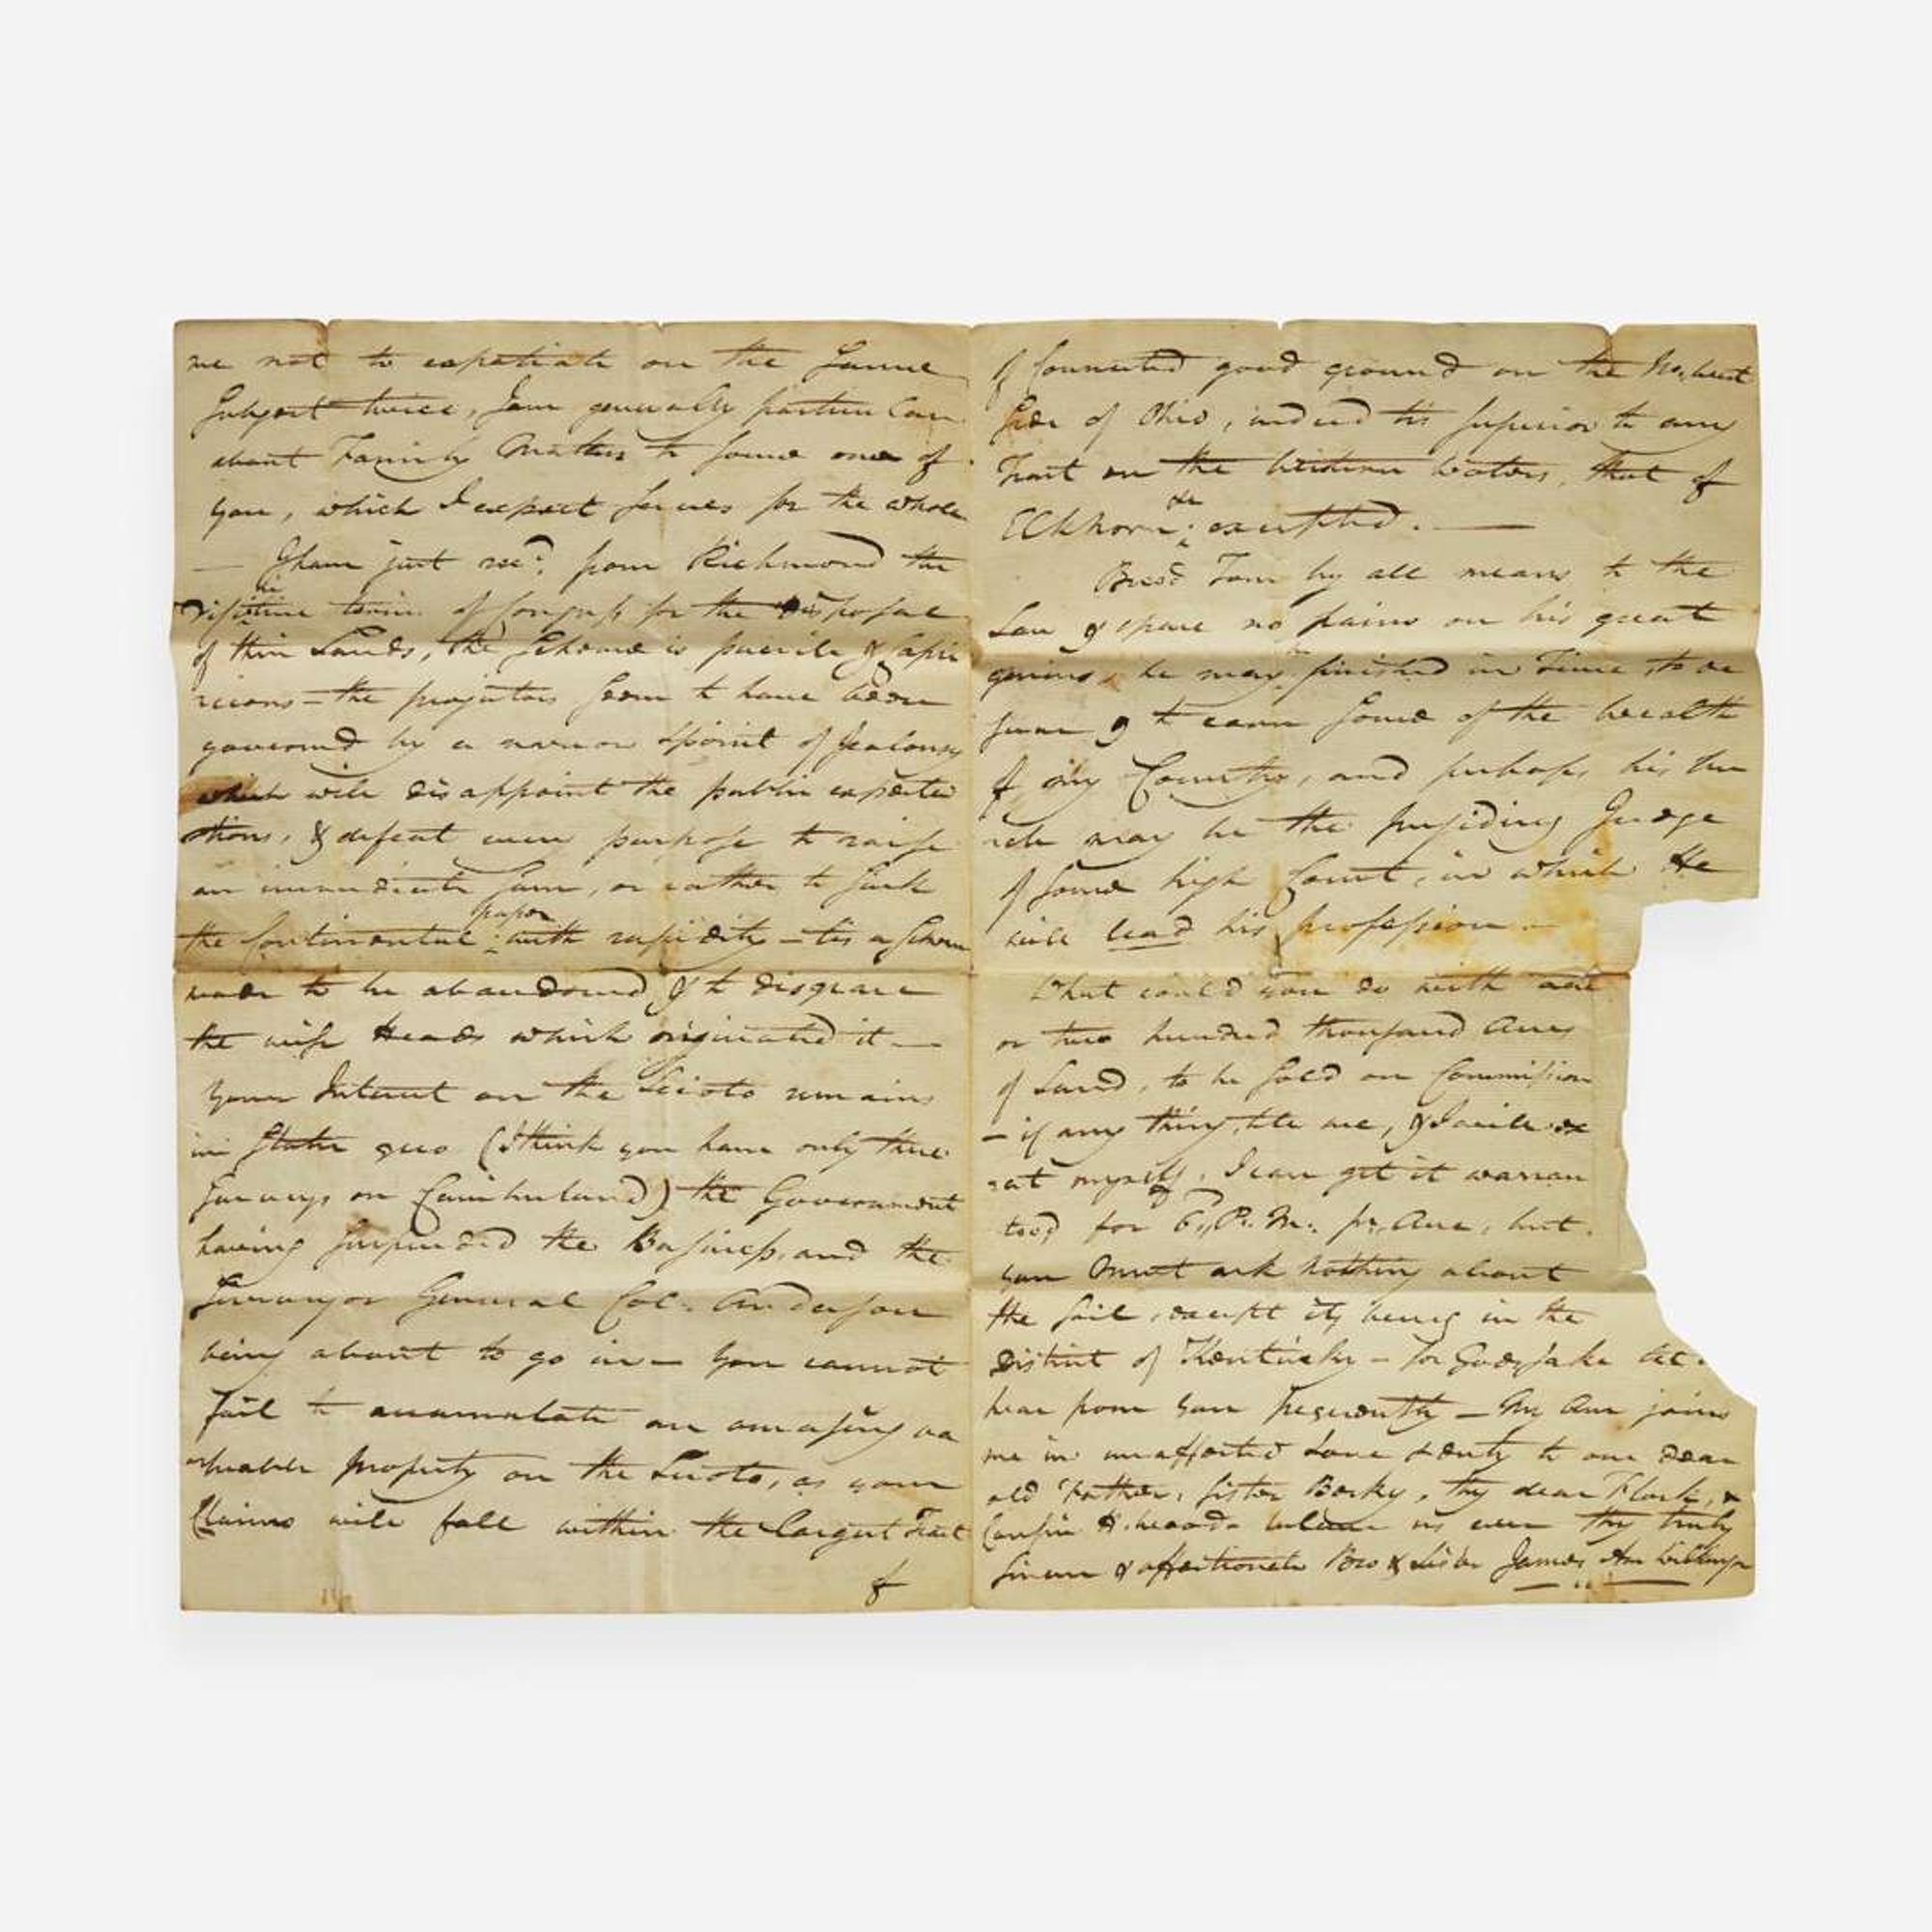 me not to expatiate on the same
Subject twice, I am generally particular
about Family Matters to some one of
you, which I expect serves for the whole
— I have just recd. from Richmond the
of Congress for the disposal
of their Lands, the scheme is puerile & Capri
cious — the projectors seem to have been
governed by a narrow spirit of Jealousy
which will disappoint the public expecta
tions, & defeat every purpose to raise
an immediate Sum, or rather to sink
the Continental paper with rapidity — tis a scheme
made to be abandoned & to disgrace
the wise Heads which originated it —
Your Interest on the Scioto remains
in Statu quo (I think you have only three
Surveys on Cumberland) the Government
having suspended the Business, and the
Surveyor General Col. Anderson
being about to go in — You cannot
fail to accumulate an amazing va
luable property on the Scioto, as your
Claims will fall within the largest Tract
of
of Connected good ground on the No. West
side of Ohio, indeed tis superior to any
Tract on the Western Waters, that of
Elkhorn &c excepted. —
Breed Tom by all means to the
Law & spare no pains on his great
genius, he may finished in Time to se
cure & to earn some of the wealth
of my Country, and perhaps his
may be the presiding Judge
of some high Court, in which He
will lead his profession —
What could you do with one
or two hundred thousand Acres
of Land, to be sold on Commission
— if any thing, tell me, & I will ex
ert myself, I can get it warran
ted for 6d P. M. pr. Acre, but
you must ask nothing about
the soil, except its being in the
District of Kentucky — For Gods sake let
hear from you frequently — My Ann joins
me in unaffected Love & duty to our dear
old Father, Sister Becky, thy dear Flock, &
Cousin us ever thy truly
sincere & affectionate Bro & Sister James Ann Wilkinson